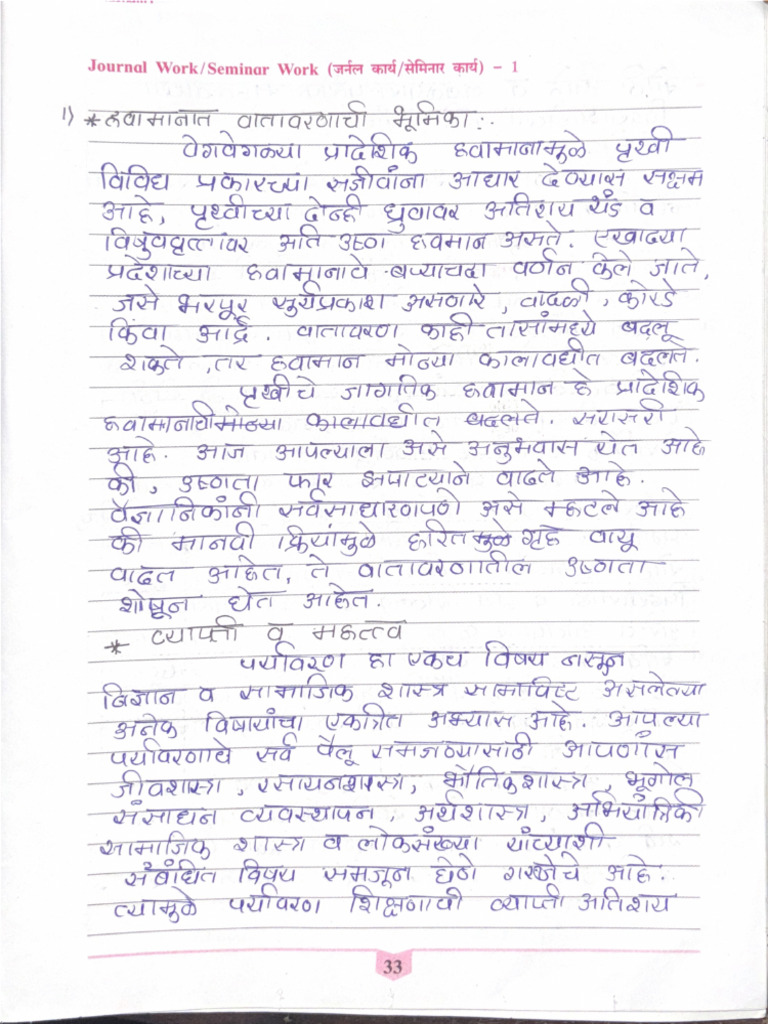 Journal Work/Seminar Work (जर्नल कार्य/सेमिनार कार्य) – 1
1) * हवामानात वातावरणाची भूमिका :.
वेगवेगळ्या प्रादेशिक हवामानामुळे पृथ्वी
विविध प्रकारच्या सजीवांना आधार देण्यास सक्षम
आहे, पृथ्वीच्या दोन्ही ध्रुवावर अतिशय थंड व
विषुववृत्तावर अति उष्ण हवमान असते. एखाद्या
प्रदेशाच्या हवामानाचे बऱ्याचदा वर्णन केले जाते,
जसे भरपूर सुर्यप्रकाश असणारे, वादळी, कोरडे
किंवा आर्द्र. वातावरण काही तासांमध्ये बदलू
शकते, तर हवामान मोठ्या कालावधीत बदलते.
पृथ्वीचे जागतिक हवामान हे प्रादेशिक
हवामानाची मोठ्या कालावधीत बदलते. सरासरी
आहे. आज आपल्याला असे अनुभवास येत आहे
की, उष्णता फार झपाट्याने वाढते आहे.
वैज्ञानिकांनी सर्वसाधारणपणे असे म्हटले आहे
की मानवी क्रियांमुळे हरितमुळे गृह वायू
वाढत आहेत, ते वातावरणातील उष्णता
शोषून घेत आहेत.
* व्याप्ती व महत्त्व
पर्यावरण हा एकच विषय नसून
विज्ञान व सामाजिक शास्त्र सामाविष्ट असलेल्या
अनेक विषायांचा एकत्रित अभ्यास आहे. आपल्या
पर्यावरणाचे सर्व पैलू समजण्यासाठी आपणांस
जीवशास्त्र, रसायनशास्त्र, भौतिकशास्त्र, भूगोल
संसाधन व्यवस्थापन, अर्थशास्त्र, अभियांत्रिकी
सामाजिक शास्त्र व लोकसंख्या यांच्याशी
संबंधित विषय समजून घेणे गरजेचे आहे.
त्यामुळे पर्यावरण शिक्षणाची व्याप्ती अतिशय
33